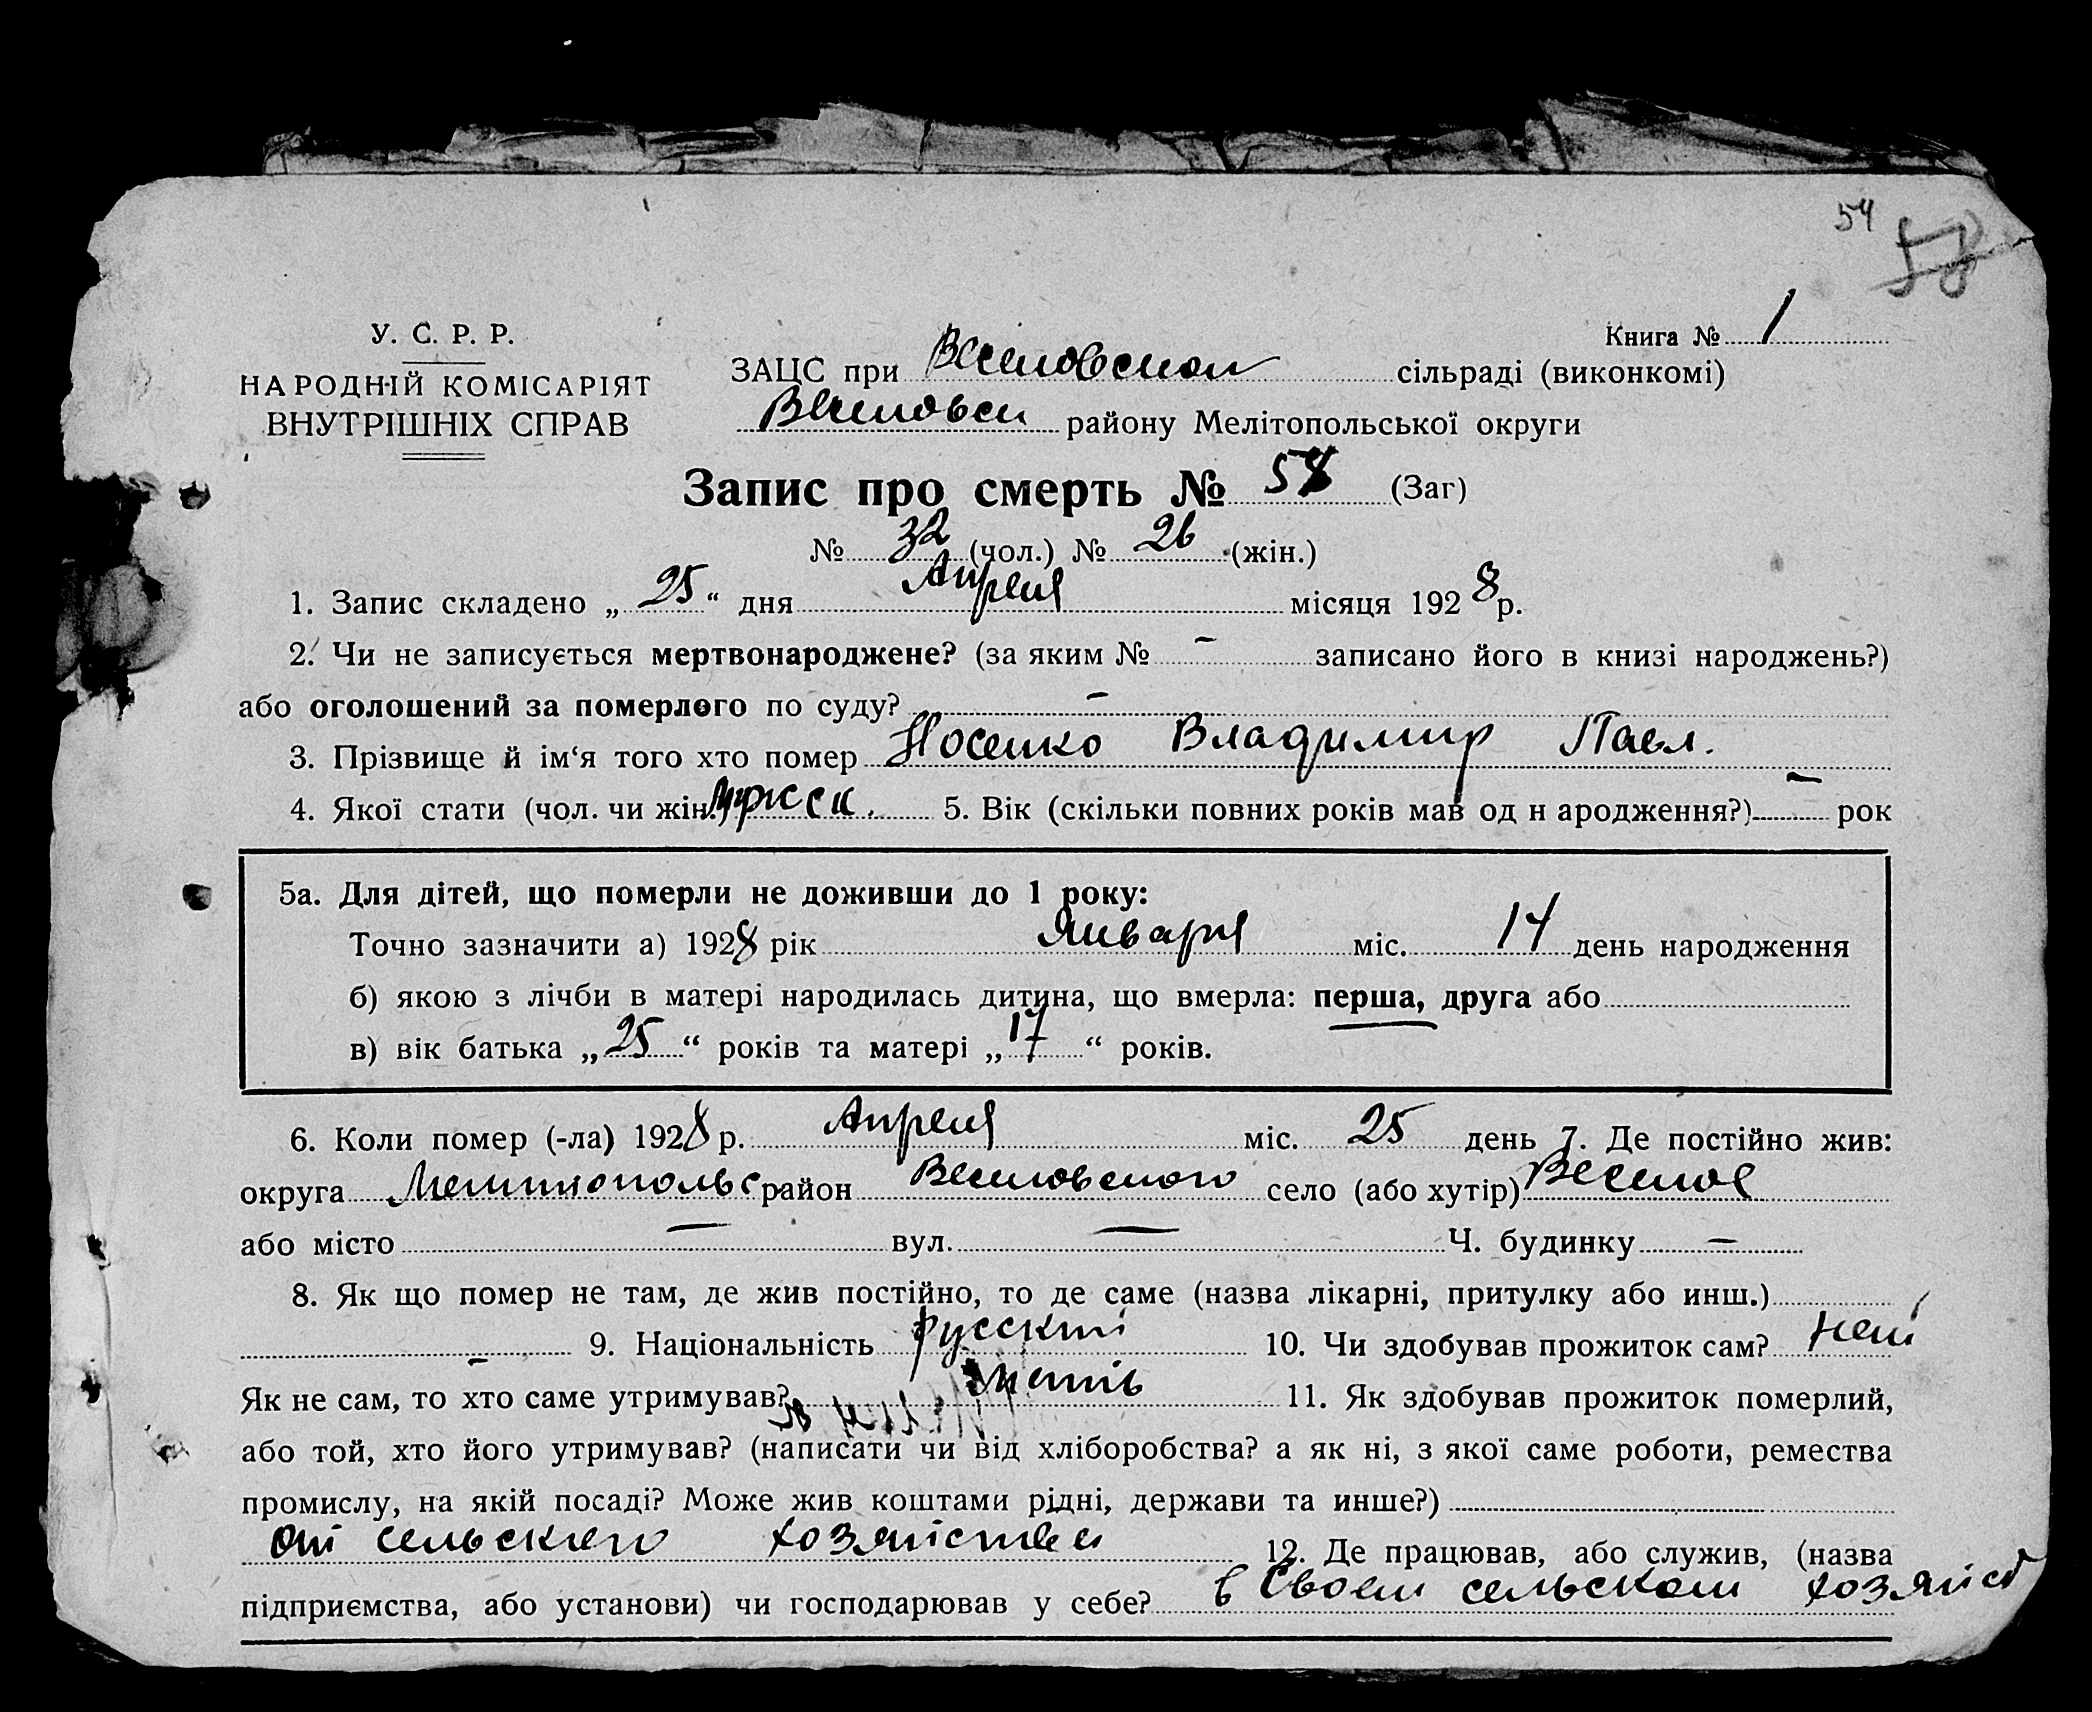 54
58
У. С. Р. Р.
Книга № 1
НАРОДНІЙ КОМІСАРІЯТ
ВНУТРІШНІХ СПРАВ
ЗАЦС при Веселовском сільраді (виконкомі)
Веселовск району Мелітопольської округи
Запис про смерть № 58 (Заг)
№ 32 (чол.) № 26 (жін.)
1. Запис складено „ 25 “ дня Апреля місяця 1928 р.
2. Чи не записується мертвонароджене? (за яким № – записано його в книзі народжень?)
або оголошений за померлого по суду? –
3. Прізвище й ім‘я того хто помер Носенко Владимир Павл.
4. Якої стати (чол. чи жін.) мужск. 5. Вік (скільки повних років мав од н ародження?) – рок
5а. Для дітей, що померли не доживши до 1 року:
Точно зазначити а) 1928 рік Января міс. 14 день народження
б) якою з лічби в матері народилась дитина, що вмерла: перша, друга або
в) вік батька „ 25 “ років та матері „ 17 “ років.
6. Коли помер (-ла) 1928 р. Апреля міс. 25 день 7. Де постійно жив:
округа Мелитопольс район Веселовского село (або хутір) Веселое
або місто – вул. – Ч. будинку –
8. Як що помер не там, де жив постійно, то де саме (назва лікарні, притулку або инш.)
– 9. Національність русский 10. Чи здобував прожиток сам? нет
Як не сам, то хто саме утримував? мать 11. Як здобував прожиток померлий,
або той, хто його утримував? (написати чи від хліборобства? а як ні, з якої саме роботи, ремества
промислу, на якій посаді? Може жив коштами рідні, держави та инше?)
от сельского хозяйства 12. Де працював, або служив, (назва
підприємства, або установи) чи господарював у себе? в своем сельском хозяйст